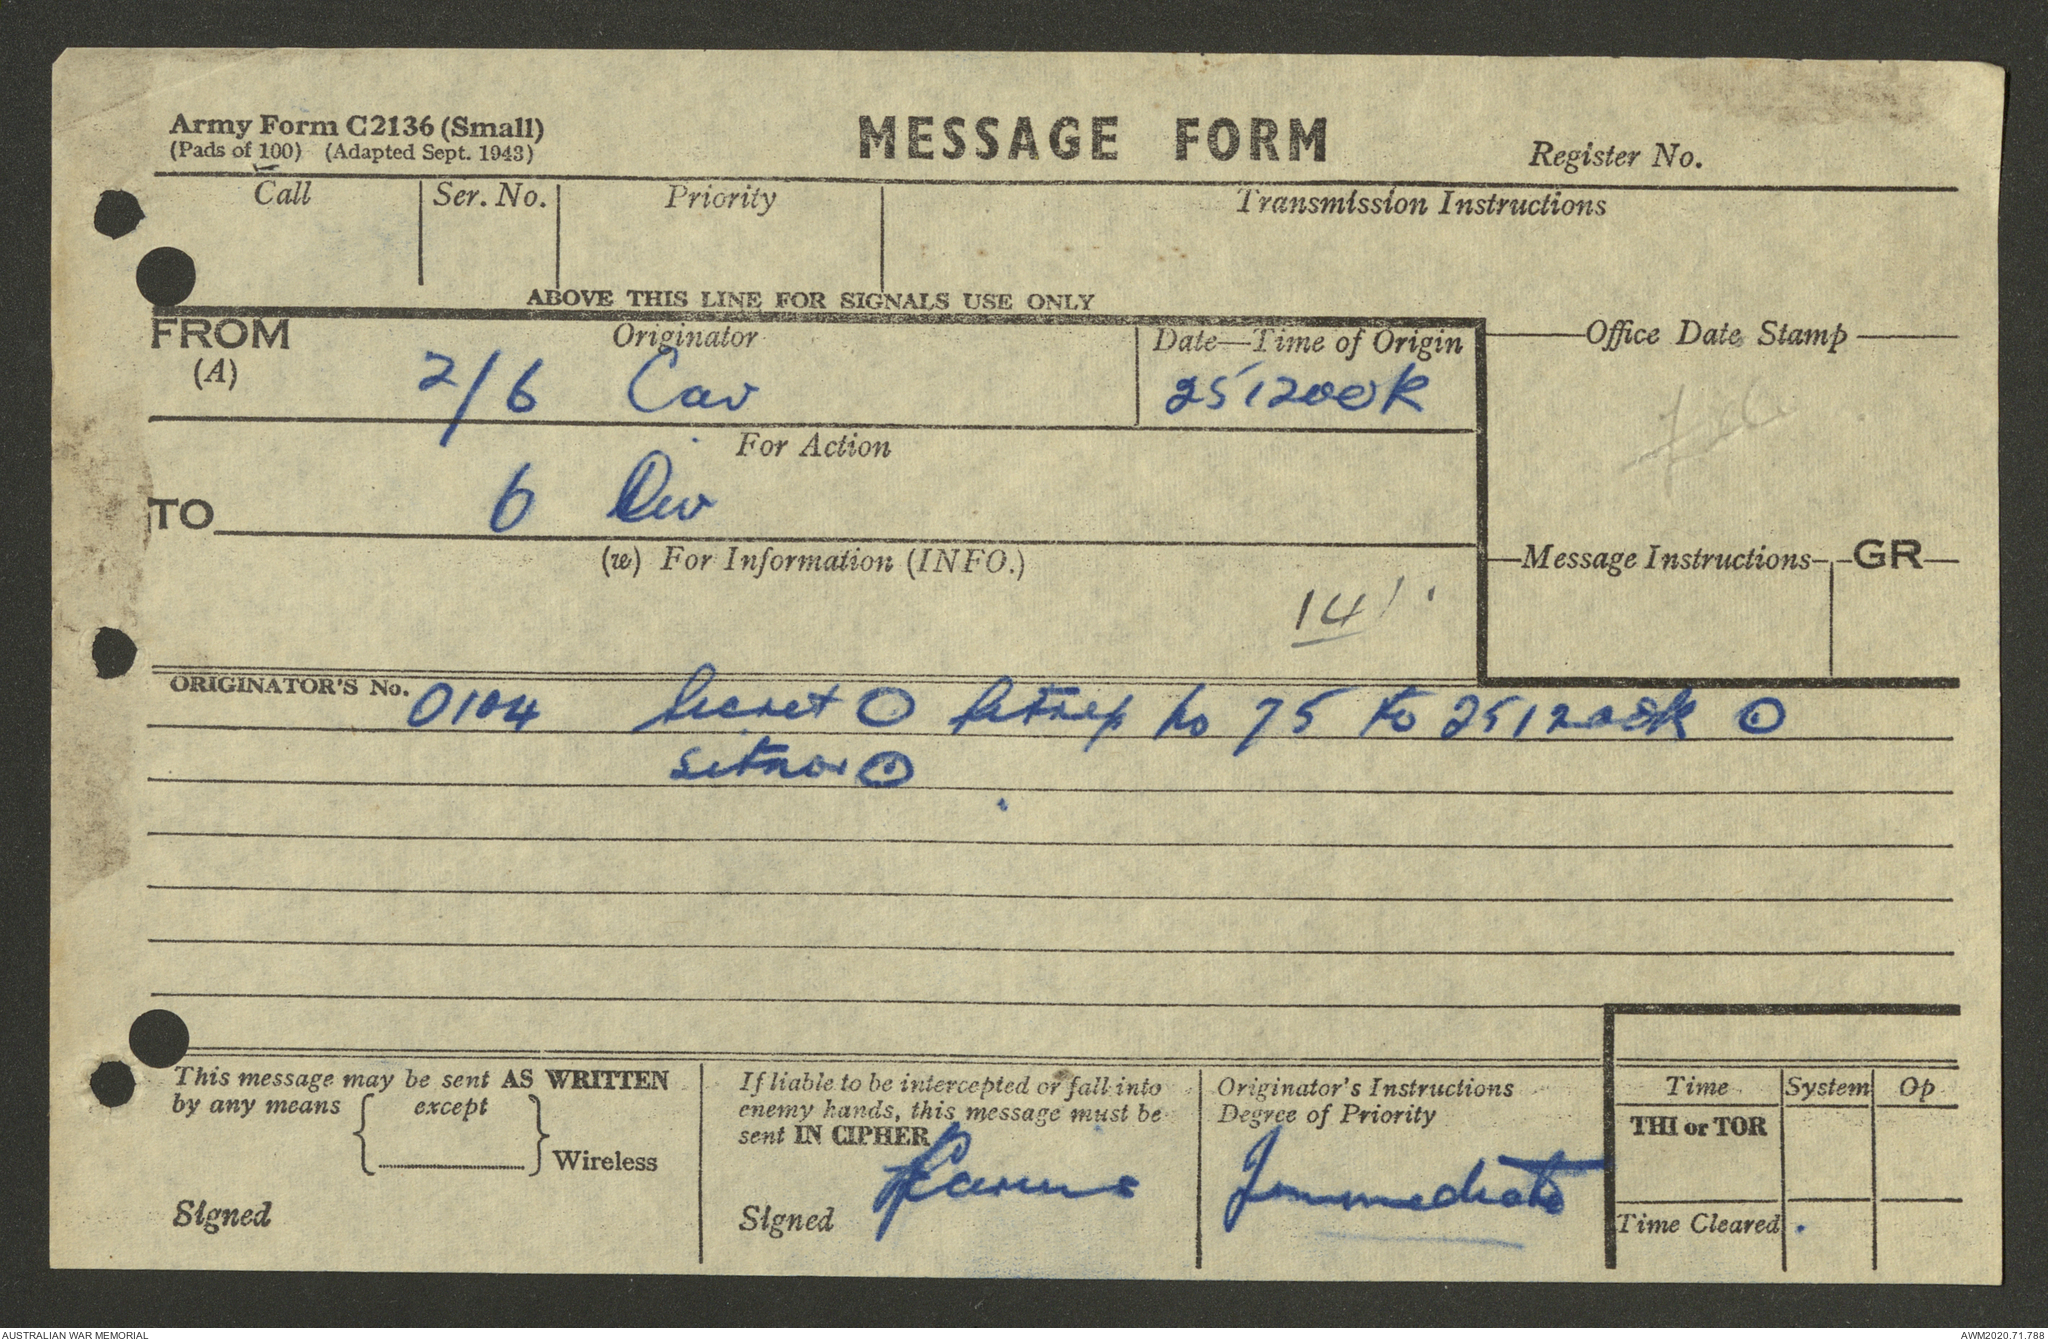 Army Form C2136 (Small)
(Pads of 100) (Adapted Sept. 1943)
MESSAGE FORM
Register No.
Call Ser. No. Priority Transmission Instructions
ABOVE THIS LINE FOR SIGNALS USE ONLY
FROM
(A)
Originator
2/6 Cav
Date—Time of Origin
251200K
Office Date Stamp
For Action
TO 6 Div
(w) For Information (INFO.)
14
Message Instructions GR
ORIGINATOR'S No. 0104 Secret ⊙ Sitrep No 75 to 251200K ⊙
sitnor ⊙
This message may be sent AS WRITTEN
by any means except
Wireless
Signed
If liable to be intercepted or fall into
enemy hands, this message must be
sent IN CIPHER
Signed
Originator's Instructions
Degree of Priority
Immediate
Time System Op
THI or TOR
Time Cleared
AUSTRALIAN WAR MEMORIAL
AWM2020.71.788